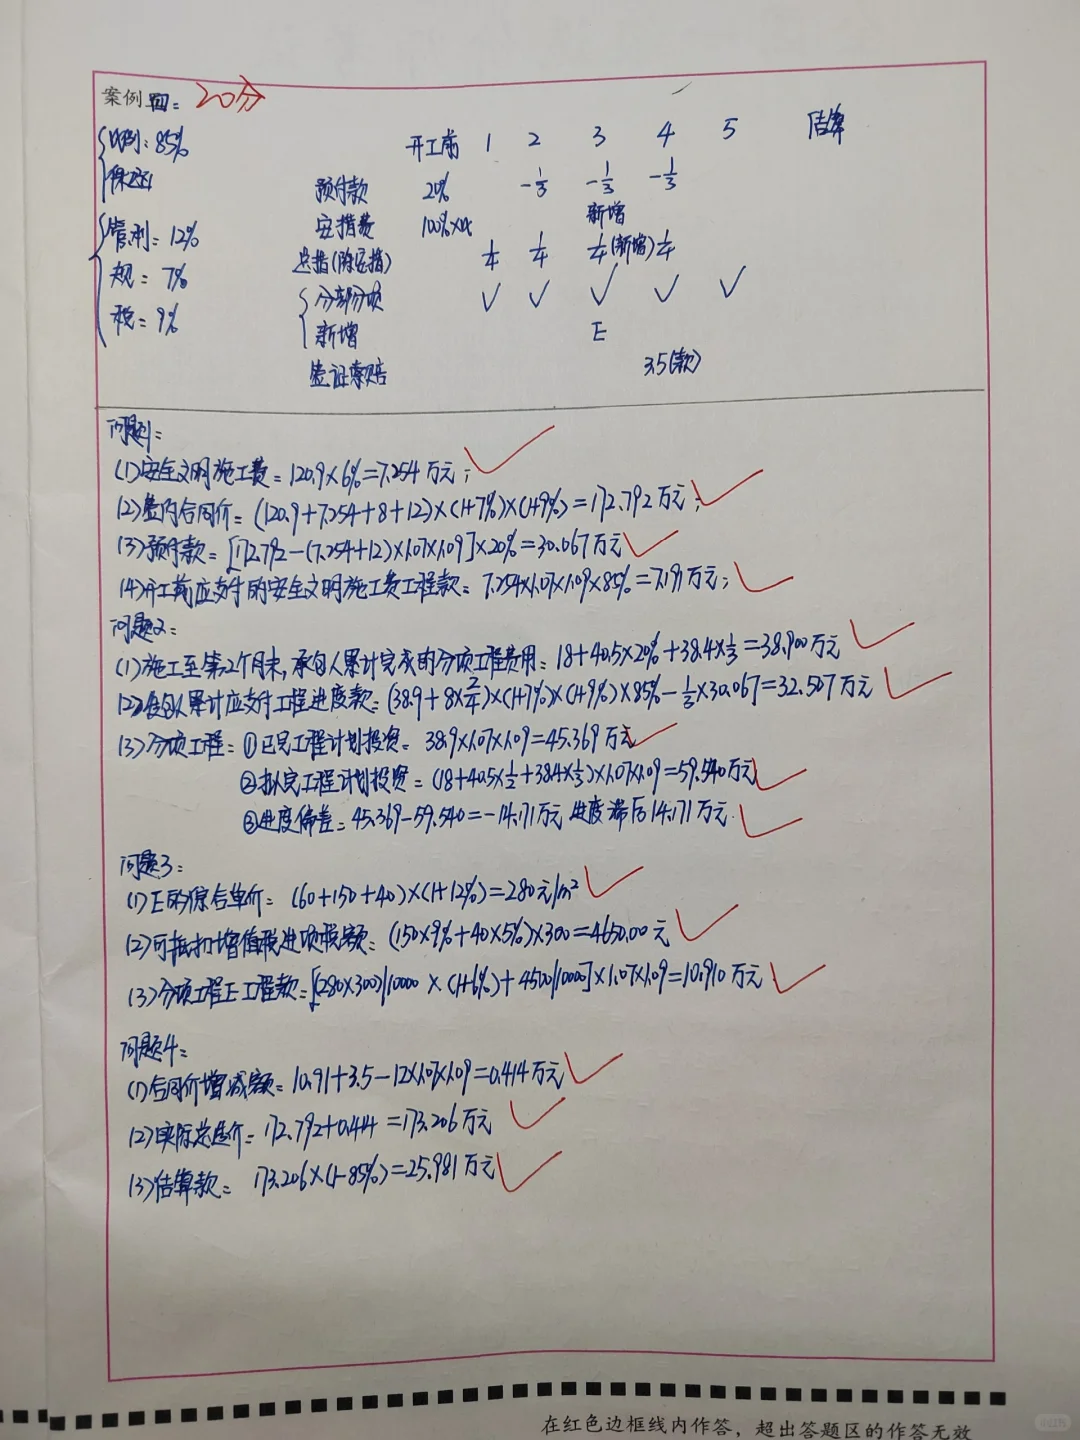 案例四: 20分
比例: 85% 开工前 1 2 3 4 5 结算
保函
预付款 20% -1/3 -1/3 -1/3
管.利 = 12% 安措费 100%×α 新增
总措(除安措) 1/4 1/4 1/4(新增) 1/4
规 = 7% 分部分项 ✓ ✓ ✓ ✓ ✓
税 = 9% 新增 E
签证索赔 3.5(款)
问题1:
(1)安全文明施工费 = 120.9×6% = 7.254万元;
(2)签约合同价 = (120.9+7.254+8+12)×(1+7%)×(1+9%) = 172.792万元;
(3)预付款 = [172.792-(7.254+12)×1.07×1.09]×20% = 30.067万元
(4)开工前应支付的安全文明施工费工程款 = 7.254×1.07×1.09×85% = 7.191万元;
问题2:
(1)施工至第2个月末,承包人累计完成的分项工程费用 = 18+40.5×20%+38.4×1/3 = 38.900万元
(2)发包人累计应支付工程进度款 = (38.9+8×2/4)×(1+7%)×(1+9%)×85%-1/3×30.067 = 32.507万元
(3)分项工程: ①已完工程计划投资 = 38.9×1.07×1.09 = 45.369万元
②拟完工程计划投资 = (18+40.5×1/2+38.4×1/3)×1.07×1.09 = 59.540万元
③进度偏差 = 45.369-59.540 = -14.171万元 进度滞后14.171万元.
问题3:
(1)E的综合单价 = (60+150+40)×(1+12%) = 280元/m²
(2)可抵扣增值税进项税额 = (150×9%+40×5%)×300 = 4650.00元
(3)分项工程E工程款 = [(280×300)/10000×(1+6%)+4500/10000]×1.07×1.09 = 10.910万元
问题4:
(1)合同价增减额 = 10.91+3.5-12×1.07×1.09 = 0.414万元
(2)实际总造价 = 172.792+0.414 = 173.206万元
(3)结算款 = 173.206×(1-85%) = 25.981万元
在红色边框线内作答，超出答题区的作答无效
小红书